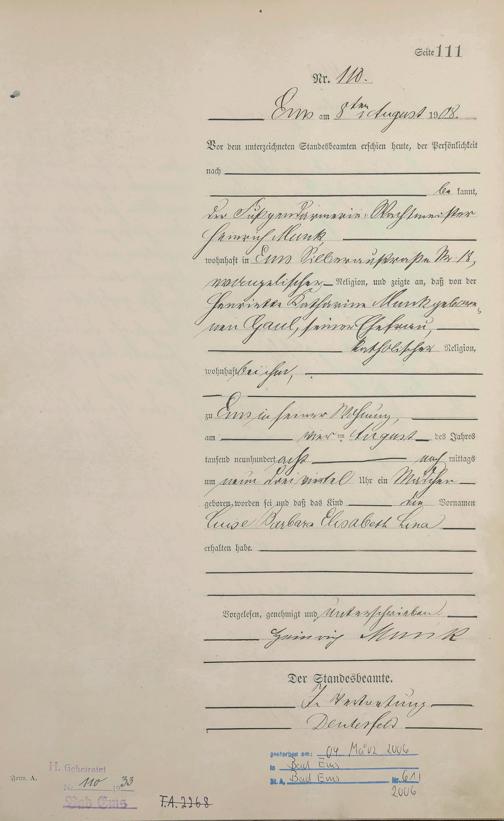 Seite 111
Nr. 110.
Ems am 8ten August 1908.
Vor dem unterzeichneten Standesbeamten erschien heute, der Persönlichkeit
nach
be kannt,
der Fußgendarmerie-Wachtmeister
Heinrich Munk,
wohnhaft in Ems Silberaustraße Nr. 18,
evangelischer Religion, und zeigte an, daß von der
Henriette Katharine Munk gebore-
nen Gaul, seiner Ehefrau,
katholischer Religion,
wohnhaft bei ihm,
zu Ems in seiner Wohnung,
am vier ten August des Jahres
tausend neunhundert acht nach mittags
um neun dreiviertel Uhr ein Mädchen
geboren worden sei und daß das Kind die Vornamen
Luise Barbara Elisabeth Lina
erhalten habe.
Vorgelesen, genehmigt und unterschrieben
Heinrich Munk
Der Standesbeamte.
In Vertretung
gestorben am: 04. März 2006
in Bad Ems
St. A. Bad Ems Nr. 61/
2006
Form. A.
H. Geheiratet
Nr. 110 1933
Bad Ems